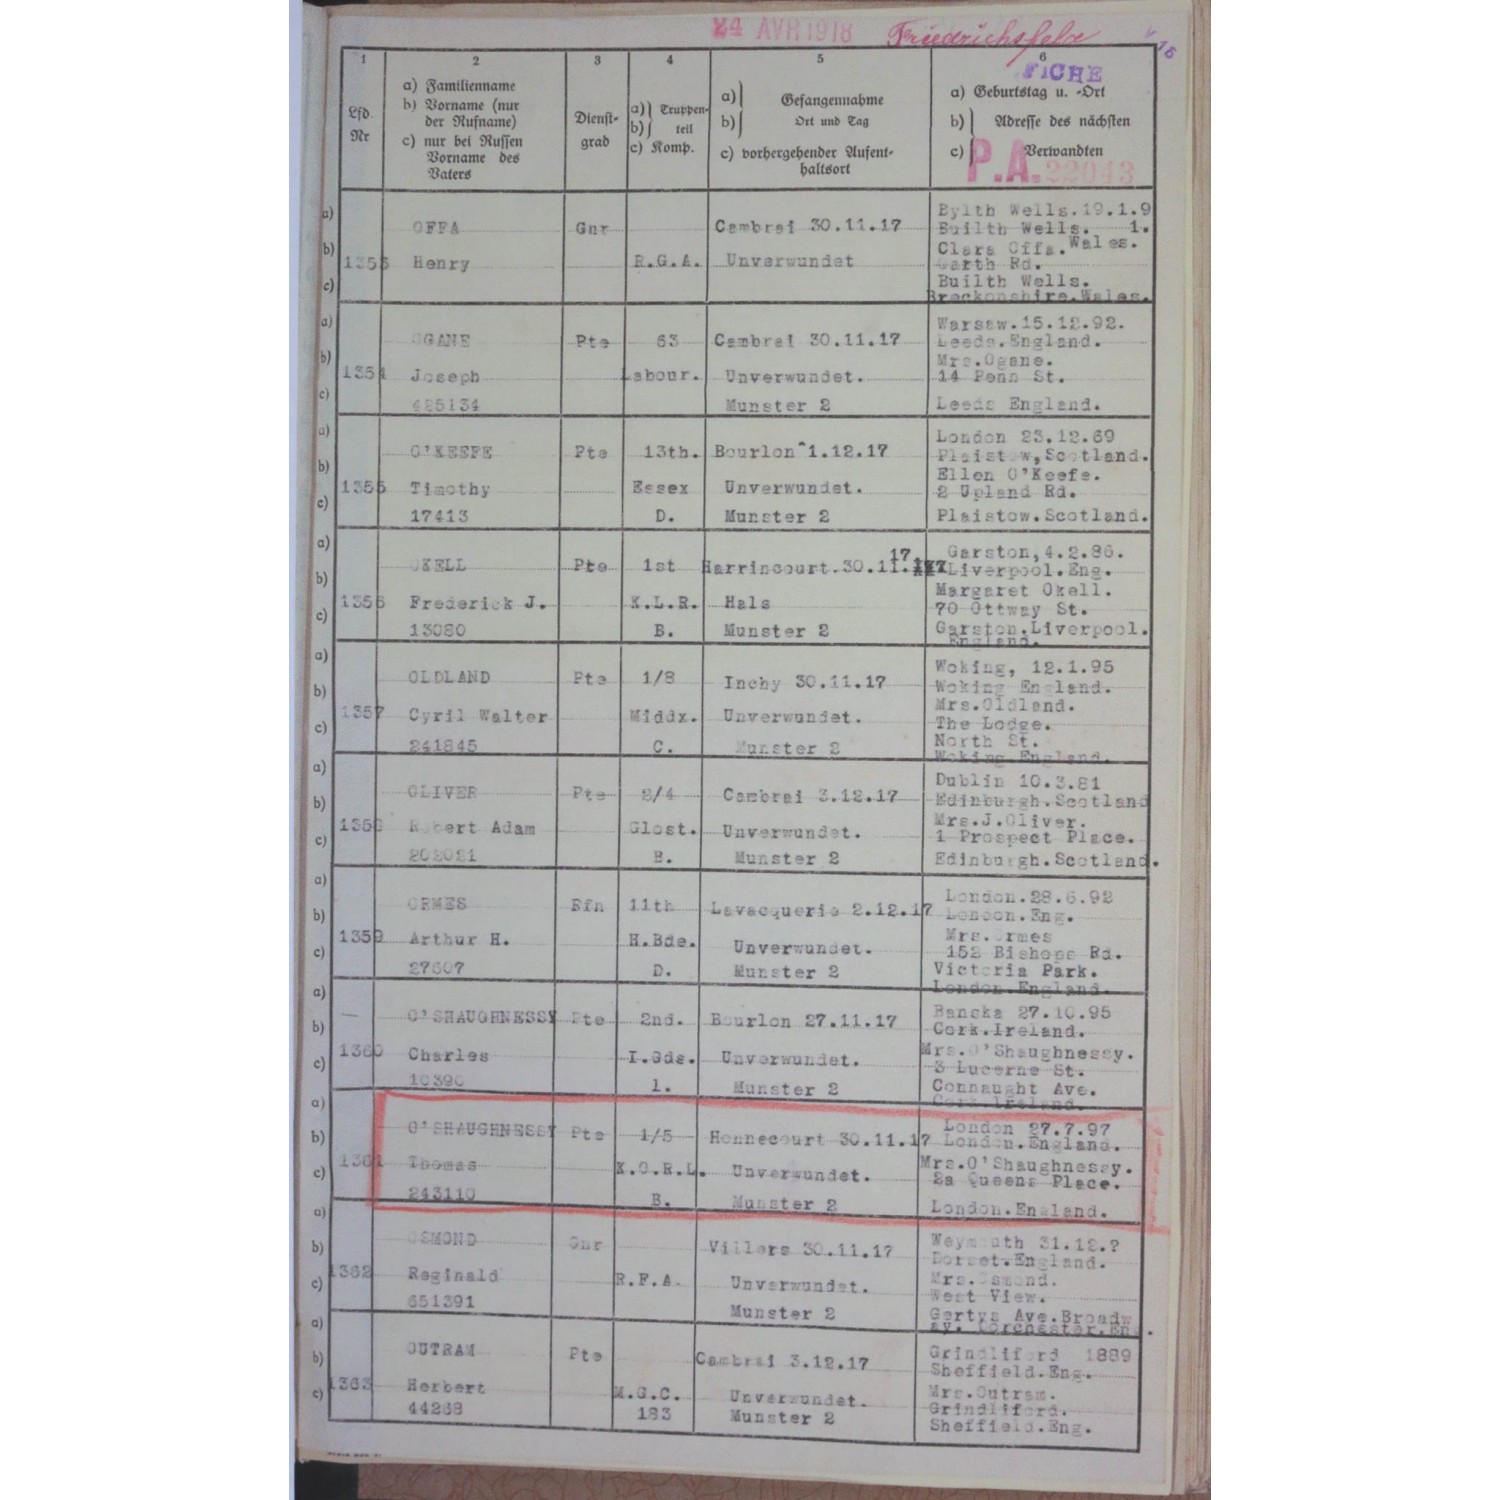 24 AVR 1918 Friedrichsfelde
15
1 2 3 4 5 6
FICHE
Lfd.
Nr
a) Familienname
b) Vorname (nur
der Rufname)
c) nur bei Russen
Vorname des
Vaters
Dienst-
grad
a) Truppen-
b) teil
c) Komp.
a) Gefangennahme
b) Ort und Tag
c) vorhergehender Aufent-
haltsort
a) Geburtstag u. -Ort
b) Adresse des nächsten
c) Verwandten
P.A. 22043
a)
b)
c)
1353
OFFA
Henry
Gnr
R.G.A.
Cambrai 30.11.17
Unverwundet
Bylth Wells.19.1.9
Builth Wells. 1.
Clara Offa. Wales.
Garth Rd.
Builth Wells.
Breckonshire.Wales.
a)
b)
c)
1354
OGANE
Joseph
425134
Pte
63
Labour.
Cambrai 30.11.17
Unverwundet.
Munster 2
Warsaw.15.12.92.
Leeds.England.
Mrs.Ogane.
14 Penn St.
Leeds England.
a)
b)
c)
1355
O'KEEFE
Timothy
17413
Pte
13th.
Essex
D.
Bourlon 1.12.17
Unverwundet.
Munster 2
London 23.12.69
Plaistow,Scotland.
Ellen O'Keefe.
2 Upland Rd.
Plaistow.Scotland.
a)
b)
c)
1356
OKELL
Frederick J.
13080
Pte
1st
K.L.R.
B.
17
Harrincourt.30.11.
Hals
Munster 2
Garston,4.2.86.
Liverpool.Eng.
Margaret Okell.
70 Ottway St.
Garston.Liverpool.
England.
a)
b)
c)
1357
OLDLAND
Cyril Walter
241845
Pte
1/8
Middx.
C.
Inchy 30.11.17
Unverwundet.
Munster 2
Woking, 12.1.95
Woking England.
Mrs.Oldland.
The Lodge.
North St.
Woking England.
a)
b)
c)
1358
OLIVER
Robert Adam
202021
Pte
2/4
Glost.
B.
Cambrai 3.12.17
Unverwundet.
Munster 2
Dublin 10.3.81
Edinburgh.Scotland
Mrs.J.Oliver.
1 Prospect Place.
Edinburgh.Scotland.
a)
b)
c)
1359
ORMES
Arthur H.
27607
Rfn
11th
R.Bde.
D.
Lavacquerie 2.12.17
Unverwundet.
Munster 2
London.28.6.92
London.Eng.
Mrs.Ormes
152 Bishops Rd.
Victoria Park.
London.England.
a)
b)
c)
1360
O'SHAUGHNESSY
Charles
10390
Pte
2nd.
I.Gds.
1.
Bourlon 27.11.17
Unverwundet.
Munster 2
Banska 27.10.95
Cork.Ireland.
Mrs.O'Shaughnessy.
3 Lucerne St.
Connaught Ave.
Cork.Ireland.
a)
b)
c)
1361
O'SHAUGHNESSY
Thomas
243110
Pte
1/5
K.O.R.L.
B.
Honnecourt 30.11.17
Unverwundet.
Munster 2
London 27.7.97
London.England.
Mrs.O'Shaughnessy.
2a Queens Place.
London.England.
a)
b)
c)
1362
OSMOND
Reginald
651391
Gnr
R.F.A.
Villers 30.11.17
Unverwundet.
Munster 2
Weymouth 31.12.?
Dorset.England.
Mrs.Osmond.
West View.
Gertys Ave.Broadw
ay. Dorchester.Eng.
a)
b)
c)
1363
OUTRAM
Herbert
44268
Pte
M.G.C.
183
Cambrai 3.12.17
Unverwundet.
Munster 2
Grindliford 1889
Sheffield.Eng.
Mrs.Outram.
Grindliford.
Sheffield.Eng.